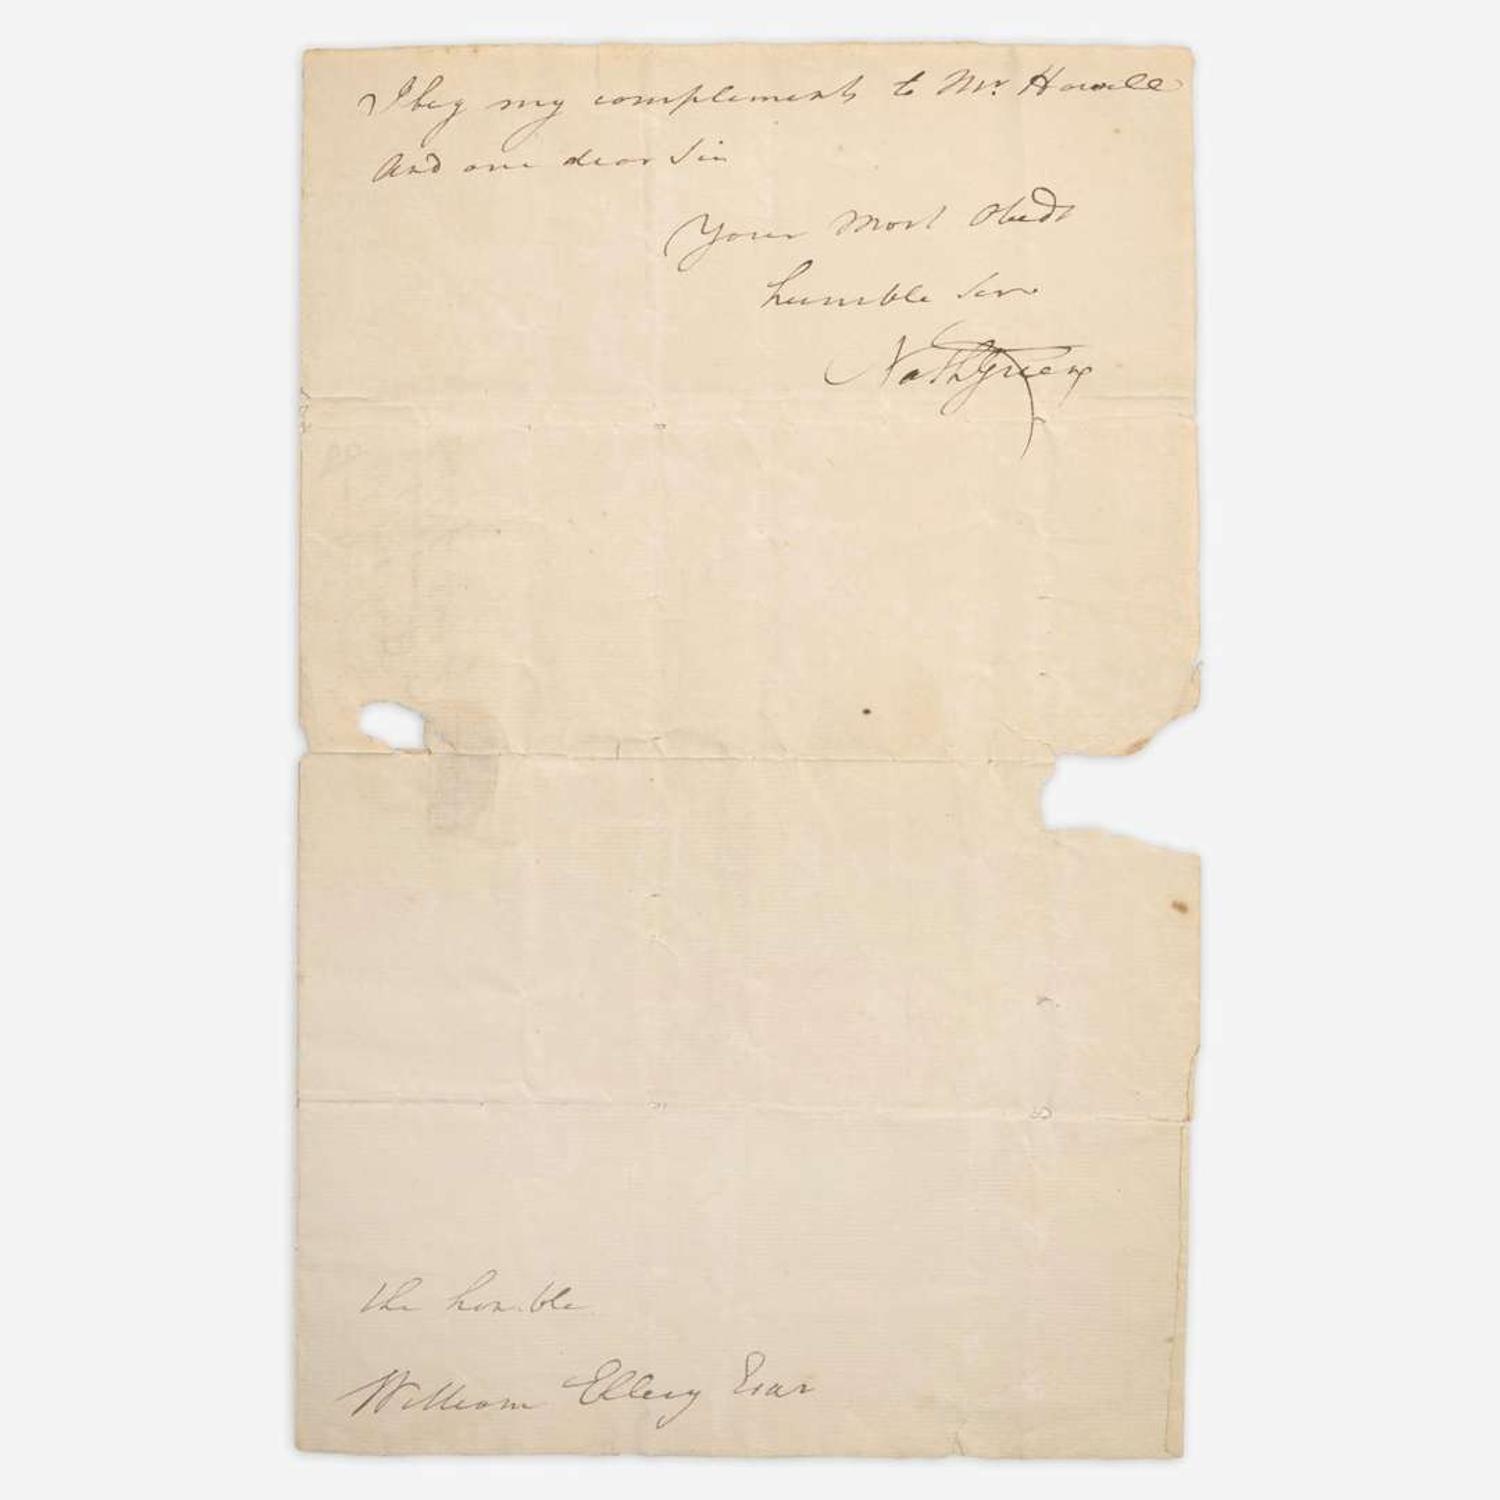 I beg my complements to Mr. Howell
And am dear Sir
Your Most Obedt
humble Serv
NathGreene
the honble
William Ellery Esqr